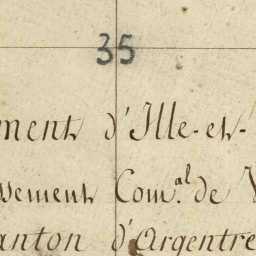 35
ment d'Ille-et-
ssement Com.al de V
anton d'Argentré